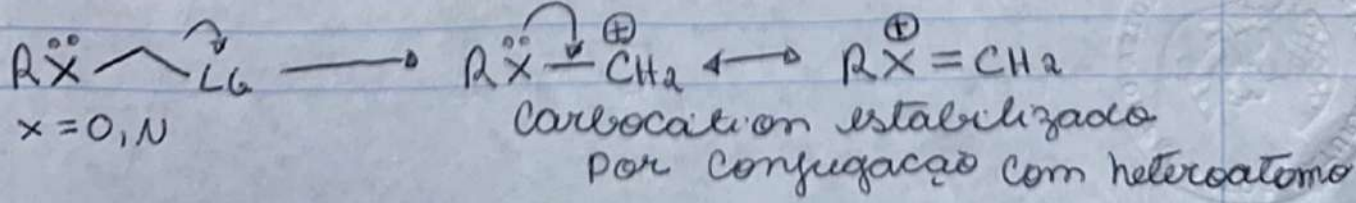 RẌ LG → RẌ – ⊕CH2 ↔ RX⊕ = CH2
x = O, N
Carbocation estabilizado
por conjugacação com heteroatomo